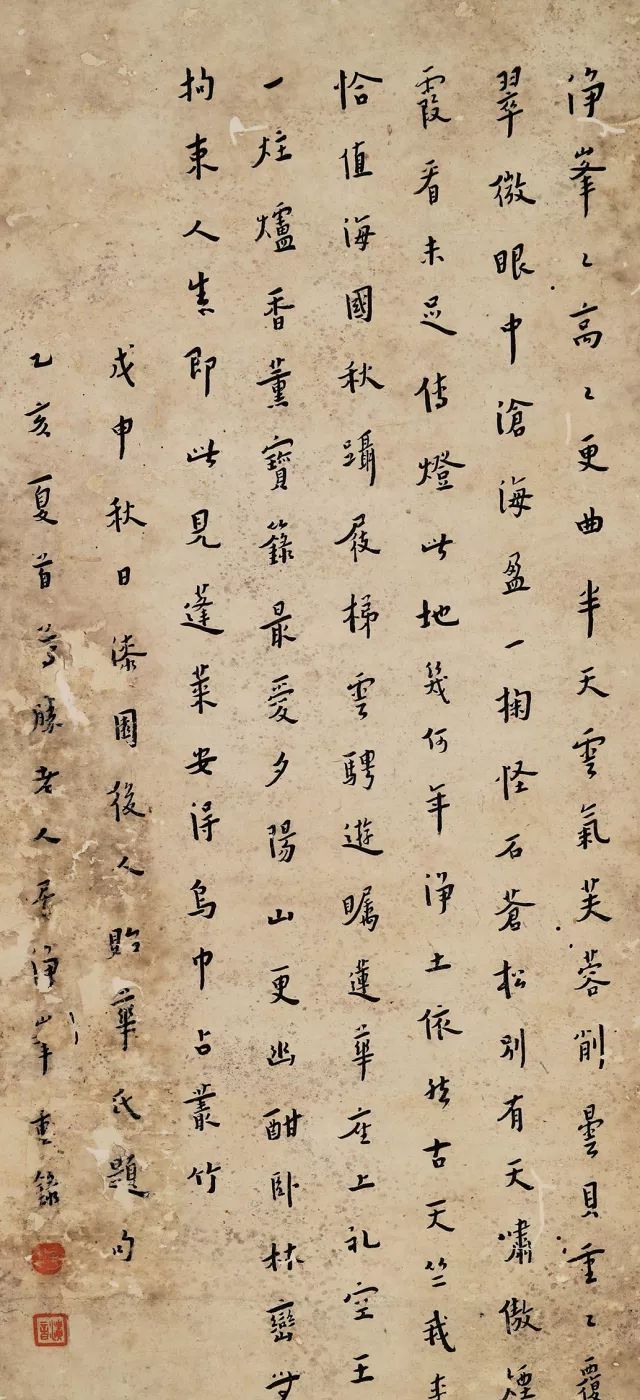 淨峯〻高〻更曲半天雲氣芙蓉削曇貝重〻覆
翠微眼中滄海盈一掬怪石蒼松別有天嘯傲煙
霞看未足傳燈此地幾何年淨土依然古天竺我来
恰值海國秋躡屐梯雲騁遊矚蓮華座上礼空王
一炷爐香薰寶籙最愛夕陽山更幽酣卧林巒
拘束人即此見蓬萊安得烏巾占叢竹
戊申秋日漆園後人貽華氏題句
乙亥夏首尊勝老人居淨峯重錄
演音